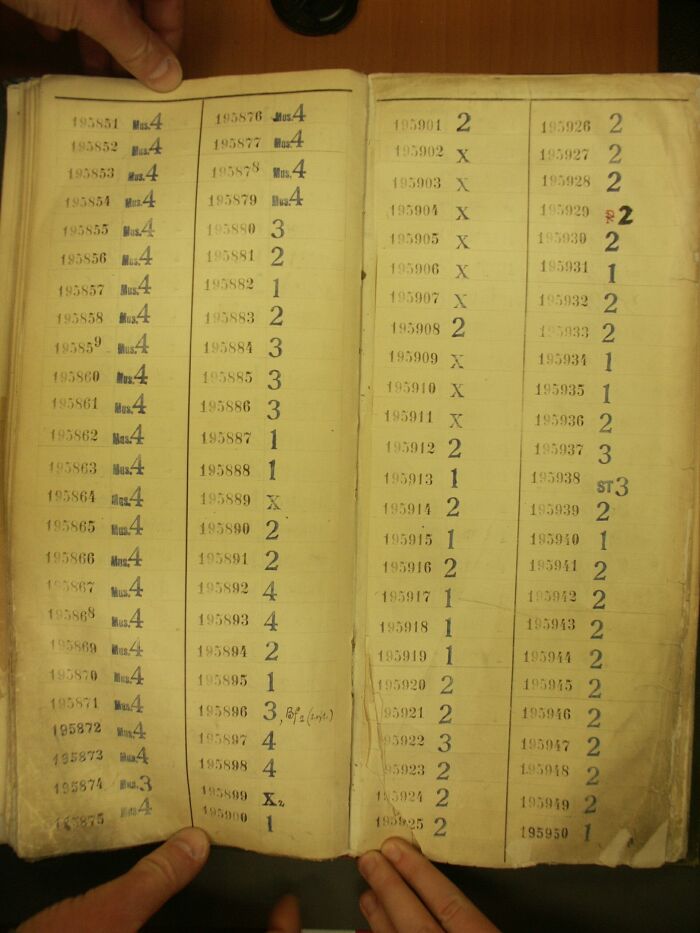 195851 Mus.4
195852 Mus.4
195853 Mus.4
195854 Mus.4
195855 Mus.4
195856 Mus.4
195857 Mus.4
195858 Mus.4
195859 Mus.4
195860 Mus.4
195861 Mus.4
195862 Mus.4
195863 Mus.4
195864 Mus.4
195865 Mus.4
195866 Mus.4
195867 Mus.4
195868 Mus.4
195869 Mus.4
195870 Mus.4
195871 Mus.4
195872 Mus.4
195873 Mus.4
195874 Mus.3
195875 Mus.4
195876 Mus.4
195877 Mus.4
195878 Mus.4
195879 Mus.4
195880 3
195881 2
195882 1
195883 2
195884 3
195885 3
195886 3
195887 1
195888 1
195889 X
195890 2
195891 2
195892 4
195893 4
195894 2
195895 1
195896 3,
195897 4
195898 4
195899 X2
195900 1
195901 2
195902 X
195903 X
195904 X
195905 X
195906 X
195907 X
195908 2
195909 X
195910 X
195911 X
195912 2
195913 1
195914 2
195915 1
195916 2
195917 1
195918 1
195919 1
195920 2
195921 2
195922 3
195923 2
195924 2
195925 2
195926 2
195927 2
195928 2
195929 2
195930 2
195931 1
195932 2
195933 2
195934 1
195935 1
195936 2
195937 3
195938 ST3
195939 2
195940 1
195941 2
195942 2
195943 2
195944 2
195945 2
195946 2
195947 2
195948 2
195949 2
195950 1